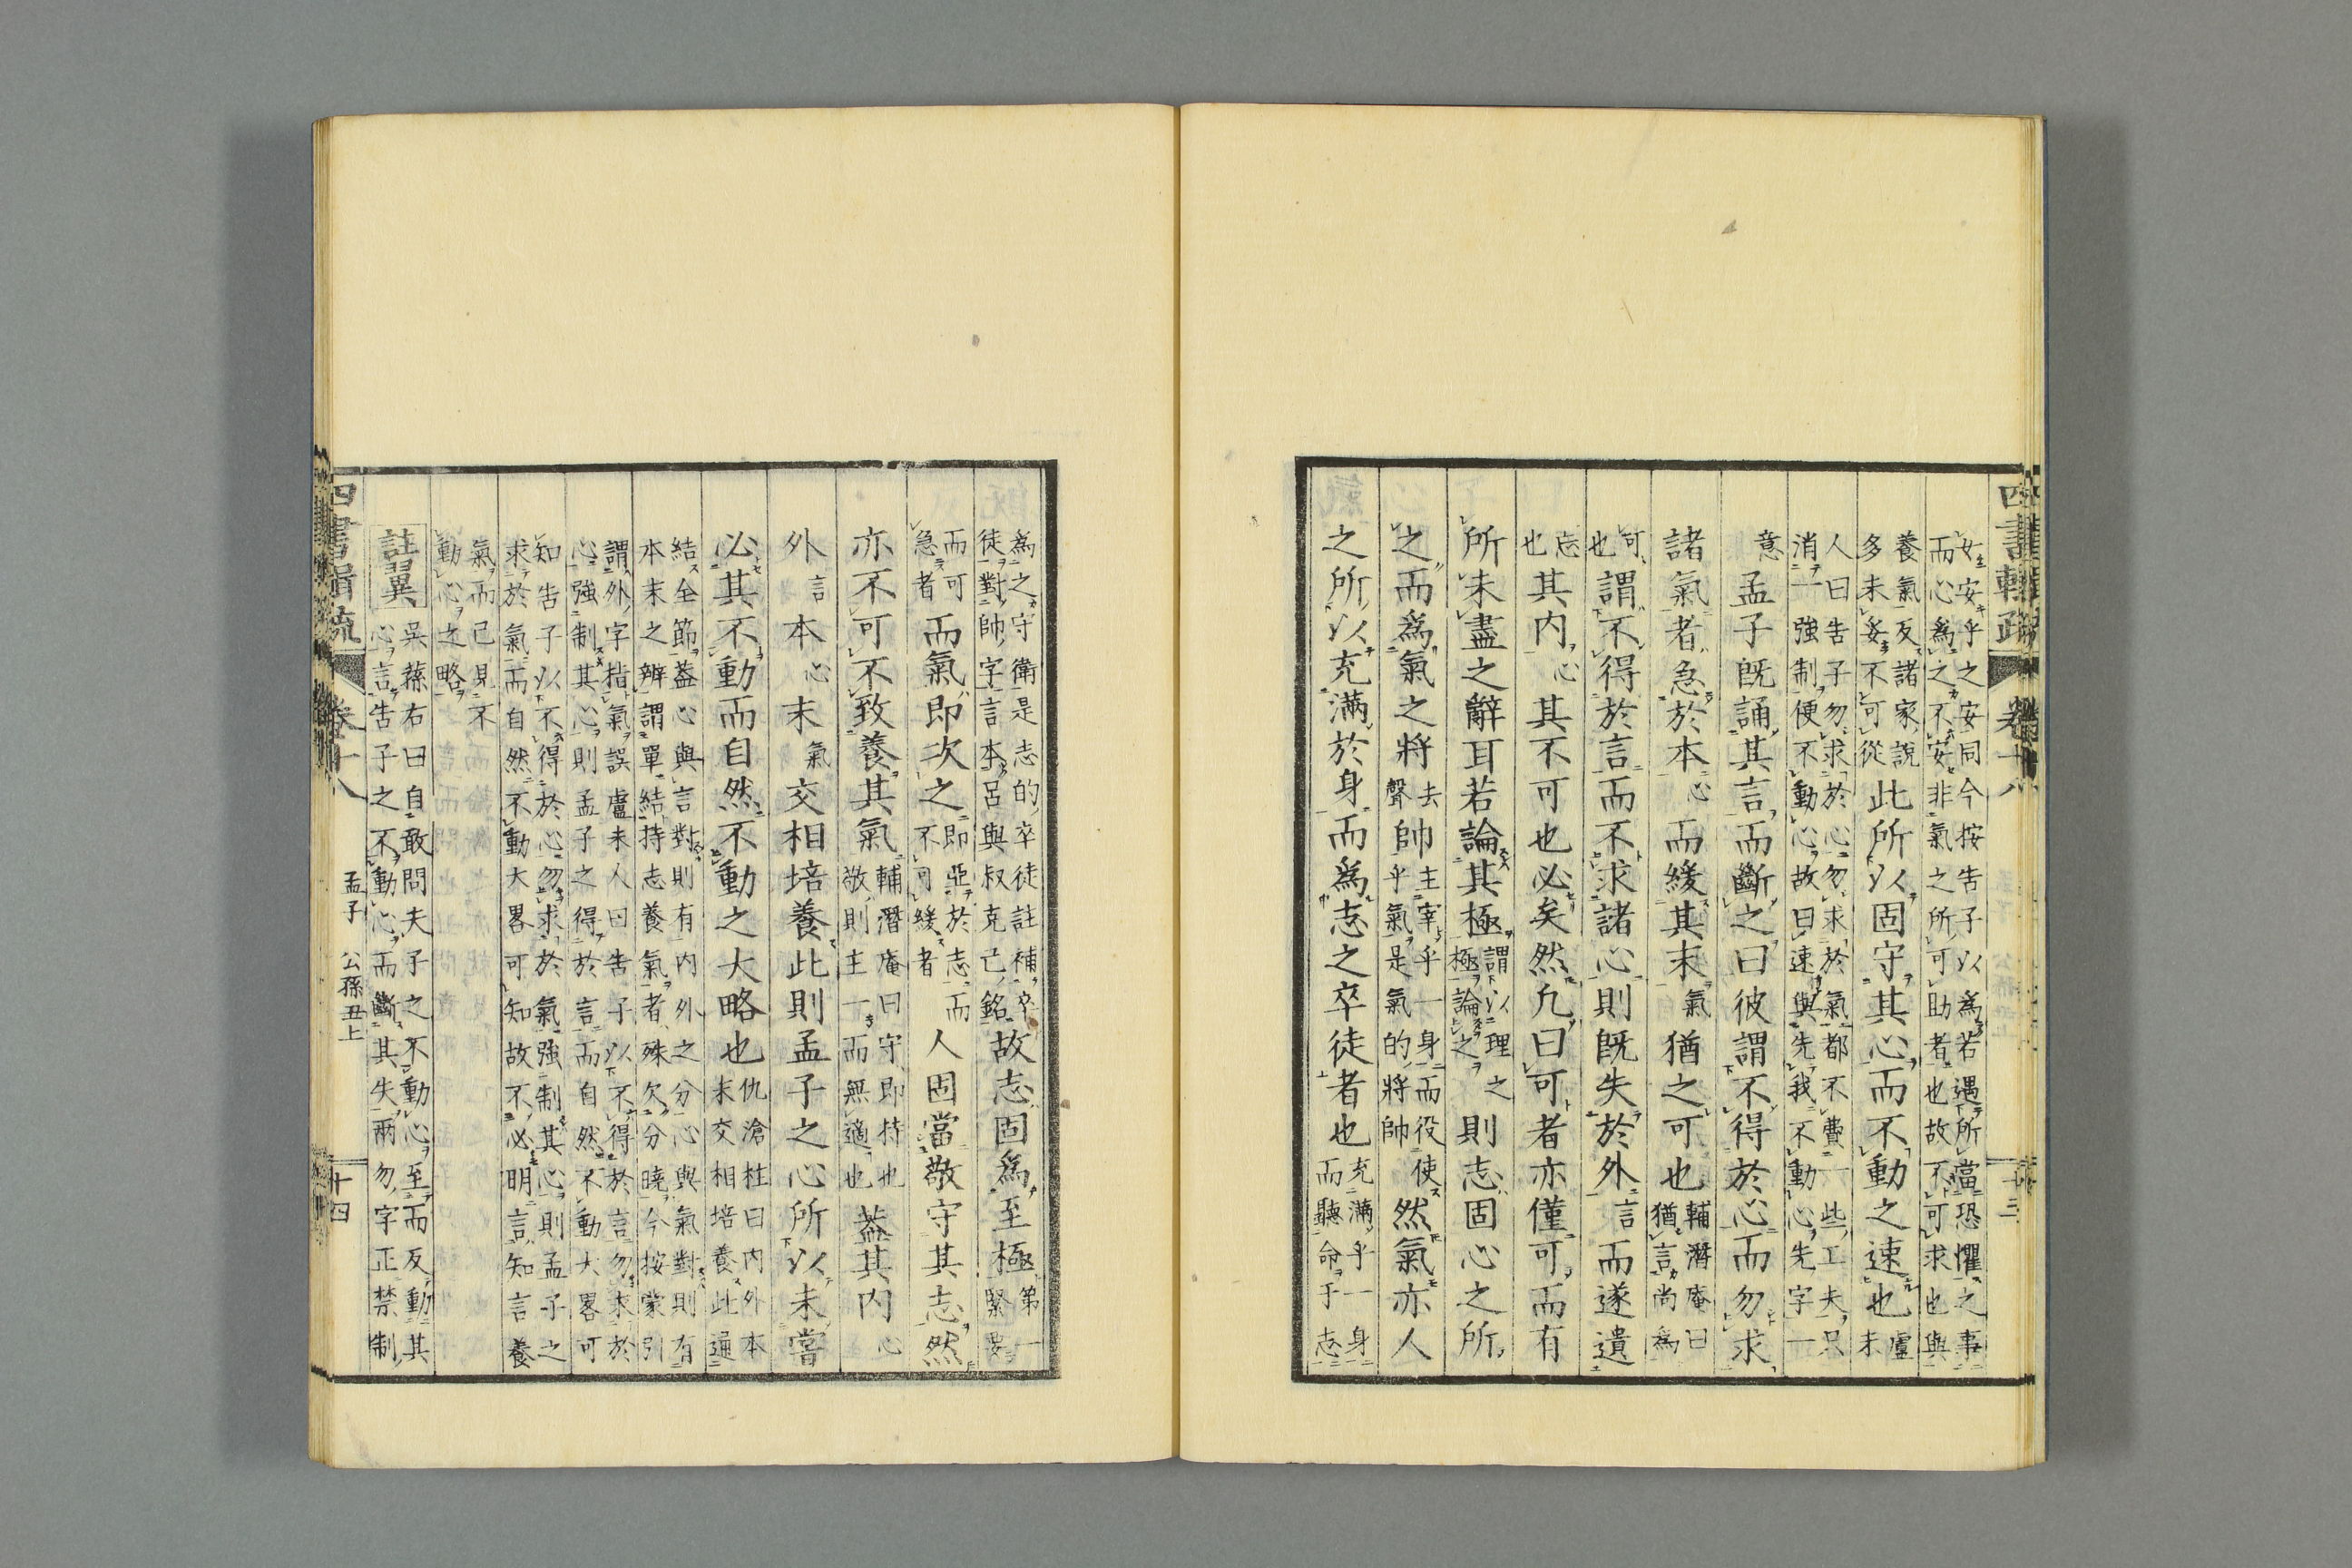 女安乎之安同今按告子以為若遇所當恐懼之事
而心為之不安非氣之所可助者也故不可求也與
養氣反諸家說
多未妥不可從
此所以固守其心而不動之速也
盧未
人曰告子勿求於心勿求於氣都不費一些工夫只
消一強制便不動心故曰速與先我不動心先字一
意
孟子既誦其言而斷之曰彼謂不得於心而勿求
諸氣者急於本心而緩其末氣猶之可也
輔潛庵曰
猶言尚為
可也
謂不得於言而不求諸心則既失於外言而遂遺
其內心其不可也必矣然凡曰可者亦僅可而有
忘也
所未盡之辭耳若論其極
謂以理之
極論之
則志固心之所
之而為氣之將去聲帥
主宰乎一身而役使
乎氣是氣的將帥
然氣亦人
之所以充滿於身而為志之卒徒者也
充滿乎一身
而聽命于志
四書輯疏 卷十八
為之守衛是志的卒徒註補卒
徒對帥字言本呂與叔克己銘
故志固為至極
第一
緊要
而可
急者
而氣即次之
即亞於志而
不可緩者
人固當敬守其志然
亦不可不致養其氣
輔潛庵曰守即持也
敬則主一而無適也
蓋其內心
外言本心末氣交相培養此則孟子之心所以未嘗
必其不動而自然不動之大略也
仇滄柱曰內外本
末交相培養此通
結全節蓋心與言對則有內外之分心與氣對則有
本末之辨謂單結持志養氣者殊欠分曉今按蒙引
謂外字指氣誤盧未人曰告子以不得於言勿求於
心強制其心則孟子之得於言而自然不動大畧可
知告子以不得於心勿求於氣強制其心則孟子之
求於氣而自然不動大畧可知故不必明言知言養
氣而已見不
動心之略
註翼
吳蓀右曰自敢問夫子之不動心至而反動其
心言告子之不動心而斷其失兩勿字正禁制
四書輯疏 卷十八 孟子 公孫丑上 十四